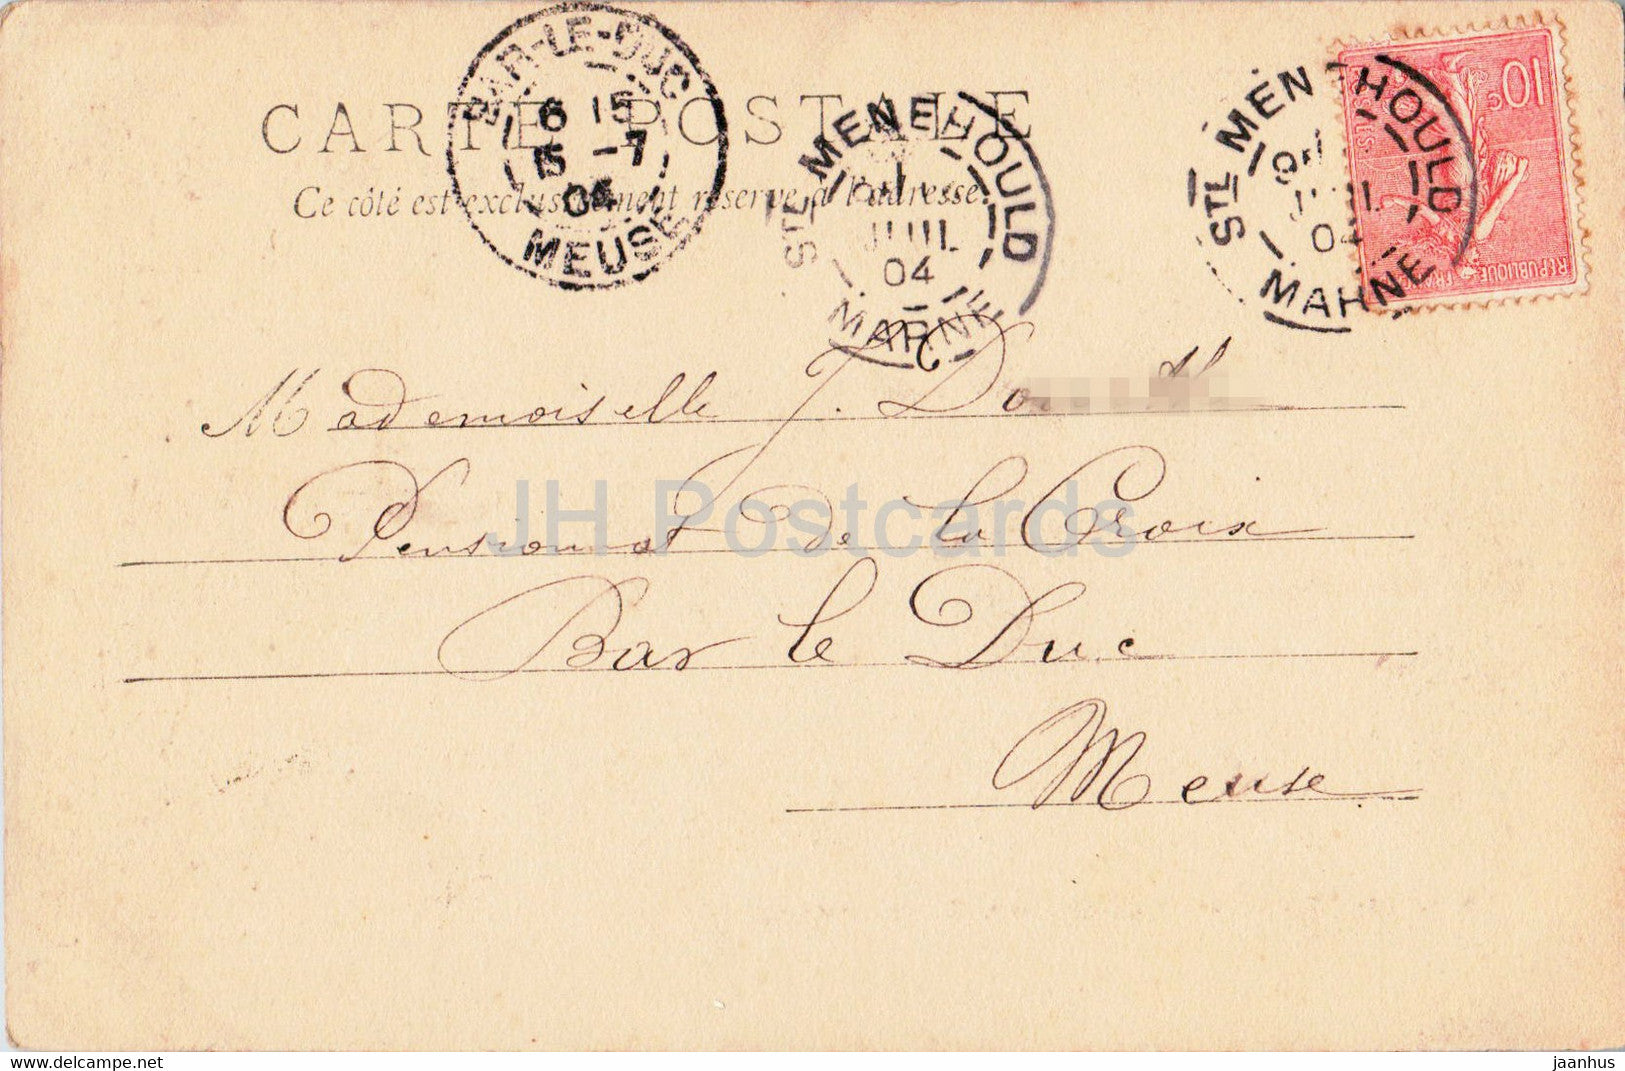 CARTE POSTALE
Ce côté est exclusivement réservé à l'adresse
BAR-LE-DUC
6 15
5 -7
04
MEUSE
STE MENEHOULD
JUIL
04
MARNE
STE MENEHOULD
JUIL
04
MARNE
10c
REPUBLIQUE FRANÇAISE
Mademoiselle J.
Pensionnat de la Croix
Bar le Duc
Meuse
JH Postcards
www.delcampe.net
jaanhus